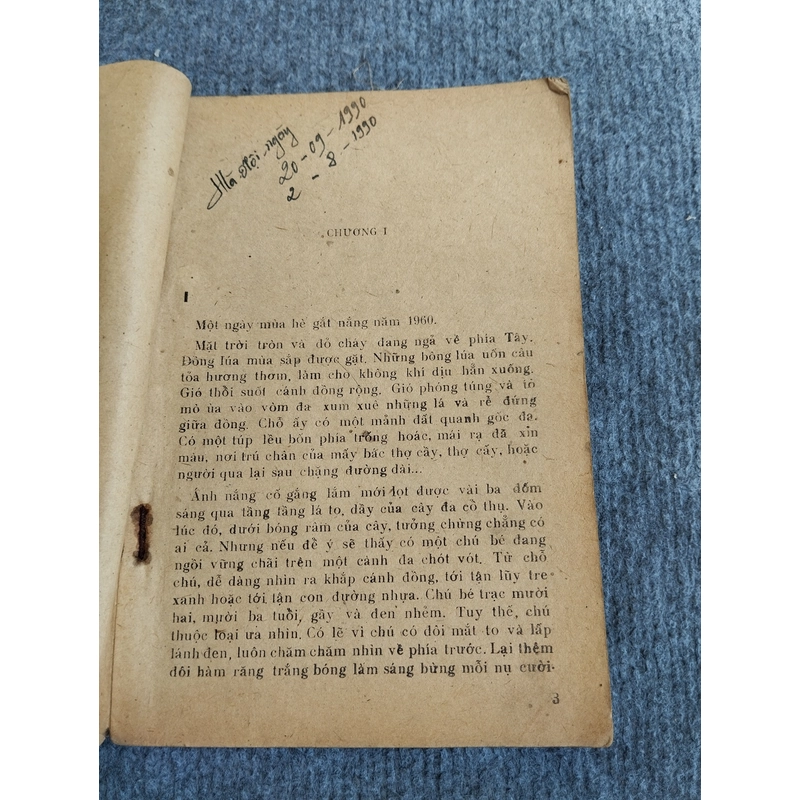 Hà Nội ngày
20-09-1990
2-8-1990
CHƯƠNG I
I
Một ngày mùa hè gắt nắng năm 1960.
Mặt trời tròn và đỏ chảy đang ngả về phía Tây.
Đồng lúa mùa sắp được gặt. Những bông lúa uốn câu
tỏa hương thơm, làm cho không khí dịu hẳn xuống.
Gió thổi suốt cánh đồng rộng. Gió phóng túng và tò
mò ùa vào vòm đa xum xuê những lá và rễ đứng
giữa đồng. Chỗ ấy có một mảnh đất quanh gốc đa.
Có một túp lều bốn phía trống hoác, mái rạ đã xỉn
màu, nơi trú chân của mấy bác thợ cầy, thợ cấy, hoặc
người qua lại sau chặng đường dài...
Ánh nắng cố gắng lắm mới lọt được vài ba đốm
sáng qua tầng tầng lá to, dầy của cây đa cổ thụ. Vào
lúc đó, dưới bóng râm của cây, tưởng chừng chẳng có
ai cả. Nhưng nếu để ý sẽ thấy có một chú bé đang
ngồi vững chãi trên một cành đa chót vót. Từ chỗ
chú, dễ dàng nhìn ra khắp cánh đồng, tới tận lũy tre
xanh hoặc tới tận con đường nhựa. Chú bé trạc mười
hai, mười ba tuổi, gầy và đen nhẻm. Tuy thế, chú
thuộc loại ưa nhìn. Có lẽ vì chú có đôi mắt to và lấp
lánh đen, luôn chăm chăm nhìn về phía trước. Lại thêm
đôi hàm răng trắng bóng làm sáng bừng mỗi nụ cười.
3